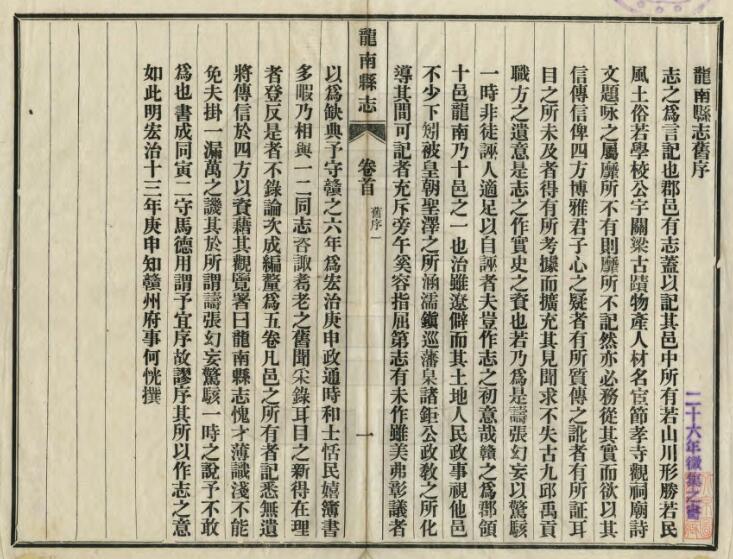 龍南縣志舊序
志之爲言記也郡邑有志蓋以記其邑中所有若山川形勝若民
風土俗若學校公宇關梁古蹟物產人材名宦節孝寺觀祠廟詩
文題咏之屬靡所不有則靡所不記然亦必務從其實而欲以其
信傳信俾四方博雅君子心之疑者有所質傳之訛者有所証耳
目之所未及者得有所考據而擴充其見聞求不失古九邱禹貢
職方之遺意是志之作實史之資也若乃爲是譸張幻妄以驚駭
一時非徒誣人適足以自誣者夫豈作志之初意哉贛之爲郡領
十邑龍南乃十邑之一也治雖遼僻而其土地人民政事視他邑
不少下矧被皇朝聖澤之所涵濡鎭巡藩臬諸鉅公政敎之所化
導其間可記者充斥旁午奚容指屈第志有未作雖美弗彰議者
龍南縣志
卷首
舊序一
一
以爲缺典予守贛之六年爲宏治庚申政通時和士恬民嬉簿書
多暇乃相與一二同志咨諏耉老之舊聞采錄耳目之新得在理
者登反是者不錄論次成編釐爲五卷凡邑之所有者記悉無遺
將傳信於四方以資藉其觀覽署曰龍南縣志愧才薄識淺不能
免夫掛一漏萬之譏其於所謂譸張幻妄驚駭一時之說予不敢
爲也書成同寅二守馬德用謂予宜序故謬序其所以作志之意
如此明宏治十三年庚申知贛州府事何恍撰
二十六年徵集之書